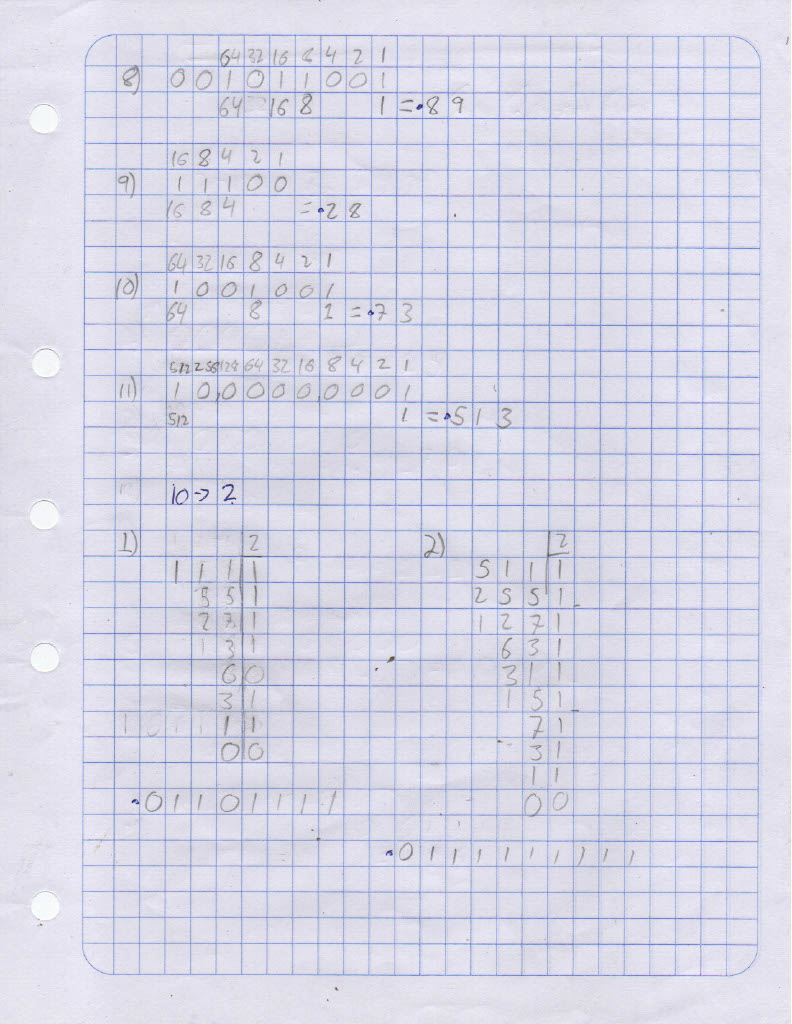 64 32 16 8 4 2 1
8) 0 0 1 0 1 1 0 0 1
64 16 8 1 = 89
16 8 4 2 1
9) 1 1 1 0 0
16 8 4 = 28
64 32 16 8 4 2 1
10) 1 0 0 1 0 0 1
64 8 1 = 73
512 256 128 64 32 16 8 4 2 1
11) 1 0,0 0 0 0,0 0 0 1
512 1 = 513
10 -> 2
1) 2
1 1 1 1
5 5 1
2 7 1
1 3 1
6 0
3 1
1 1
0 0
0 1 1 0 1 1 1 1
2) 2
5 1 1 1
2 5 5 1
1 2 7 1
6 3 1
3 1 1
1 5 1
7 1
3 1
1 1
0 0
0 1 1 1 1 1 1 1 1 1